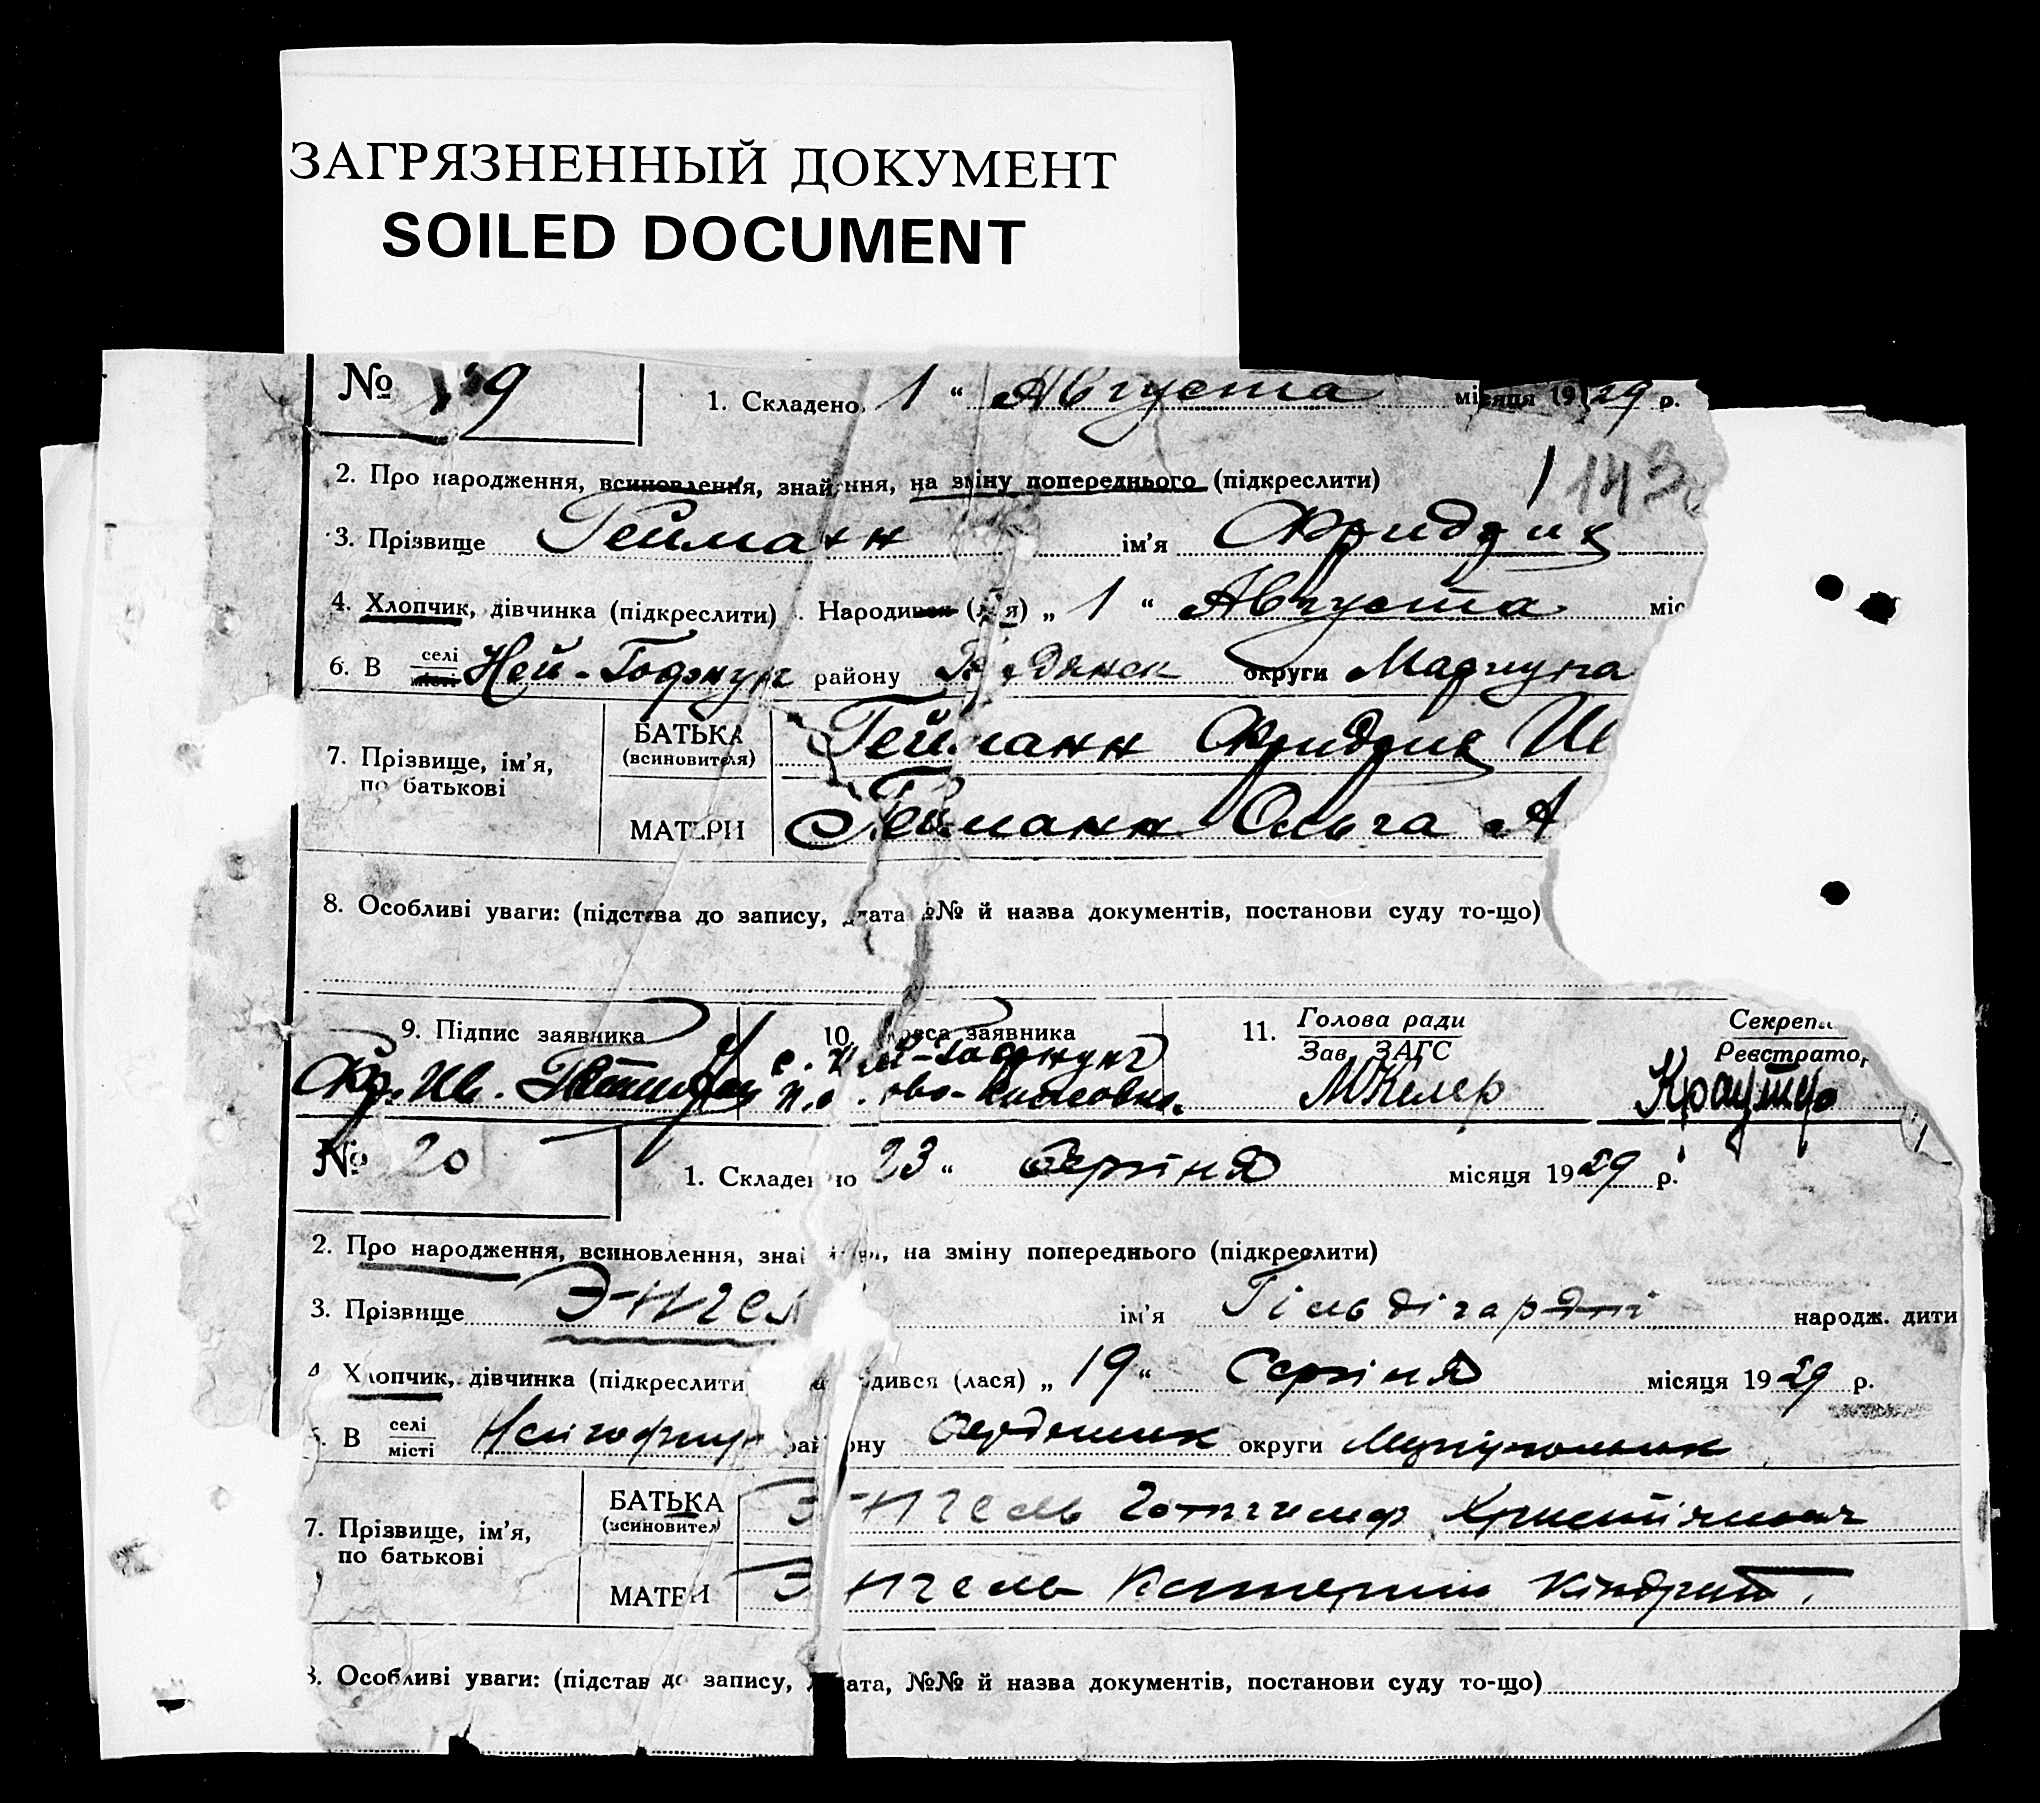 ЗАГРЯЗНЕННЫЙ ДОКУМЕНТ
SOILED DOCUMENT
№ 19 1. Складено 1 “ Августа місяця 1929 р.
143
2. Про народження, всиновлення, знайдення, на зміну попереднього (підкреслити)
3. Прізвище Гейманн ім’я Фридрик
4. Хлопчик, дівчинка (підкреслити) Народився (лася) „ 1 “ Августа міс
6. В селі місті Ней-Гофнунг району округи Мариупа
7. Прізвище, ім’я, по батькові БАТЬКА (всиновителя) Гейманн Фридрик
МАТЕРИ Гейманн Ольга А
8. Особливі уваги: (підстава до запису, дата №№ й назва документів, постанови суду то-що)
9. Підпис заявника 10. Адреса заявника 11. Голова ради Зав. ЗАГС Секрет Реєстратор
Фр. Ив. с. Ней-Гофнунг п.о. МКелер
№ 20 1. Складено 23 “ Серпня місяця 1929 р.
2. Про народження, всиновлення, знайдення, на зміну попереднього (підкреслити)
3. Прізвище Энгел ім’я Гільдігард народж. дити
4. Хлопчик, дівчинка (підкреслити) Народився (лася) „ 19 “ Серпіня місяця 1929 р.
6. В селі місті Нейгофнунг району округи
7. Прізвище, ім’я, по батькові БАТЬКА (всиновител) Энгель Готгильф Християнович
МАТЕРИ Энгель Катерина Кіндрат.
8. Особливі уваги: (підстав до запису, дата, №№ й назва документів, постанови суду то-що)